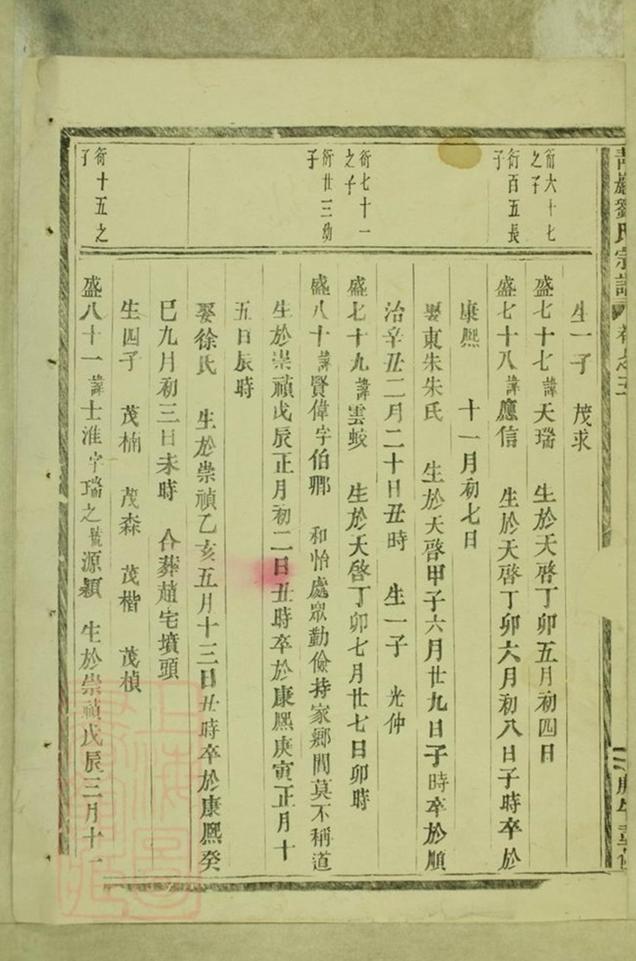 劉氏宗譜 卷之三
生一子 茂求
衍六十七之子
盛七十七諱天瑞 生於天啓丁卯五月初四日
衍百五長子
盛七十八諱應信 生於天啓丁卯六月初八日子時卒於
康熙 十一月初七日
娶東朱朱氏 生於天啓甲子六月廿九日子時卒於順
治辛丑二月二十日丑時 生一子 光仲
衍七十一之子
盛七十九諱雲蛟 生於天啓丁卯七月廿七日卯時
衍廿三幼子
盛八十諱賢偉字伯卿 和怡處眾勤儉持家鄉閭莫不稱道
生於崇禎戊辰正月初二日丑時卒於康熙庚寅正月十
五日辰時
娶徐氏 生於崇禎乙亥五月十三日丑時卒於康熙癸
巳九月初三日未時 合葬趙宅墳頭
生四子 茂楠 茂森 茂楷 茂楨
衍十五之子
盛八十一諱士淮字瑞之號源潁 生於崇禎戊辰三月十一